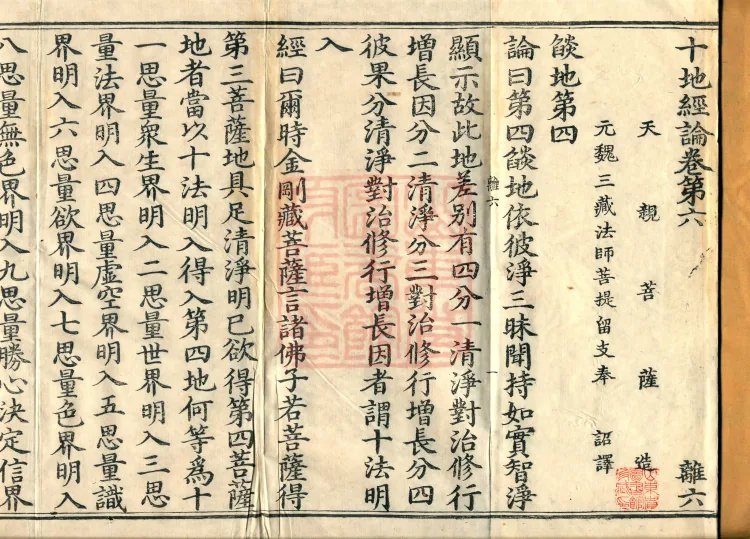 十地經論卷第六 離六
天親菩薩造
元魏三藏法師菩提留支奉 詔譯
燄地第四
論曰第四燄地依彼淨三昧聞持如實智淨
離六
一
顯示故此地差別有四分一清淨對治修行
增長因分二清淨分三對治修行增長分四
彼果分清淨對治修行增長因者謂十法明
入
經曰爾時金剛藏菩薩言諸佛子若菩薩得
第三菩薩地具足清淨明已欲得第四菩薩
地者當以十法明入得入第四地何等爲十
一思量衆生界明入二思量世界明入三思
量法界明入四思量虛空界明入五思量識
界明入六思量欲界明入七思量色界明入
八思量無色界明入九思量勝心決定信界